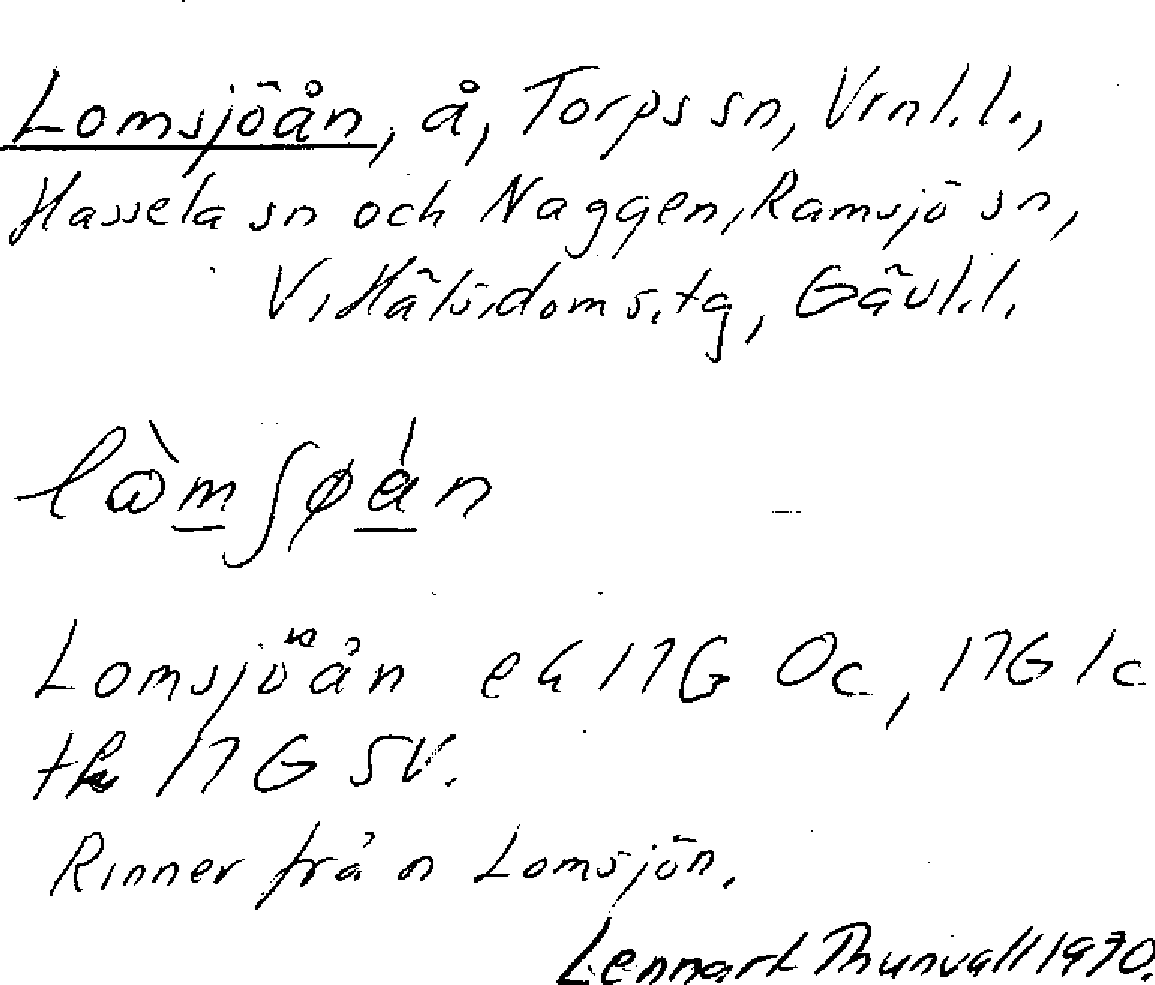 Lomsjöån, å, Torps sn, Vrnl.l.,
Hassela sn och Naggen, Ramsjö sn,
V. Häls. doms. tg, Gävl.l.
lὼmʃøán
Lomsjöån ek 17G 0c, 17G 1c
tk 17 G SV.
Rinner från Lomsjön.
Lennart Thunvall 1970.